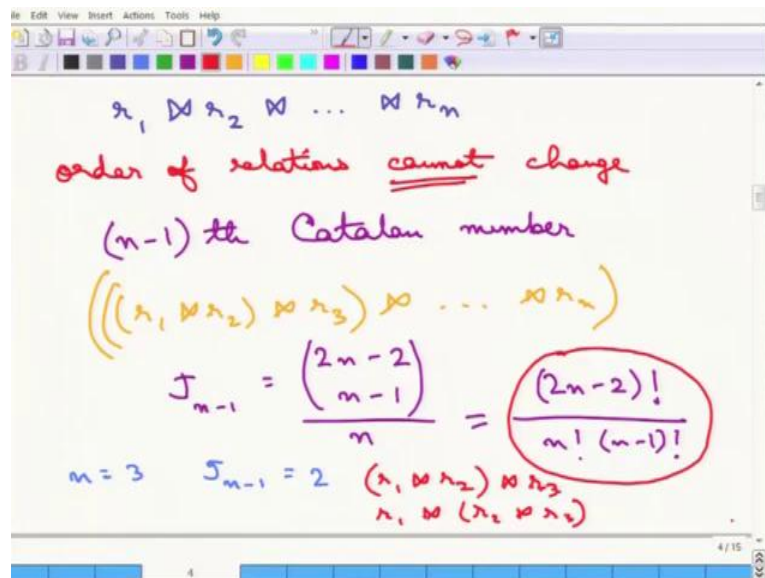 le Edit View Insert Actions Tools Help
r₁ ⋈ r₂ ⋈ ... ⋈ rₙ
order of relations cannot change
(n-1) th Catalan number
(((r₁ ⋈ r₂) ⋈ r₃) ⋈ ... ⋈ rₙ)
J_{n-1} = \frac{\binom{2n-2}{n-1}}{n} = \frac{(2n-2)!}{n! (n-1)!}
n = 3 J_{n-1} = 2 (r₁ ⋈ r₂) ⋈ r₃
r₁ ⋈ (r₂ ⋈ r₃)
4/15
4